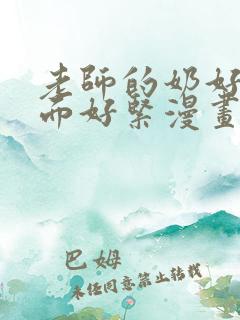 老師的奶好
而好緊漫畫
巴姆
未经同意禁止转载